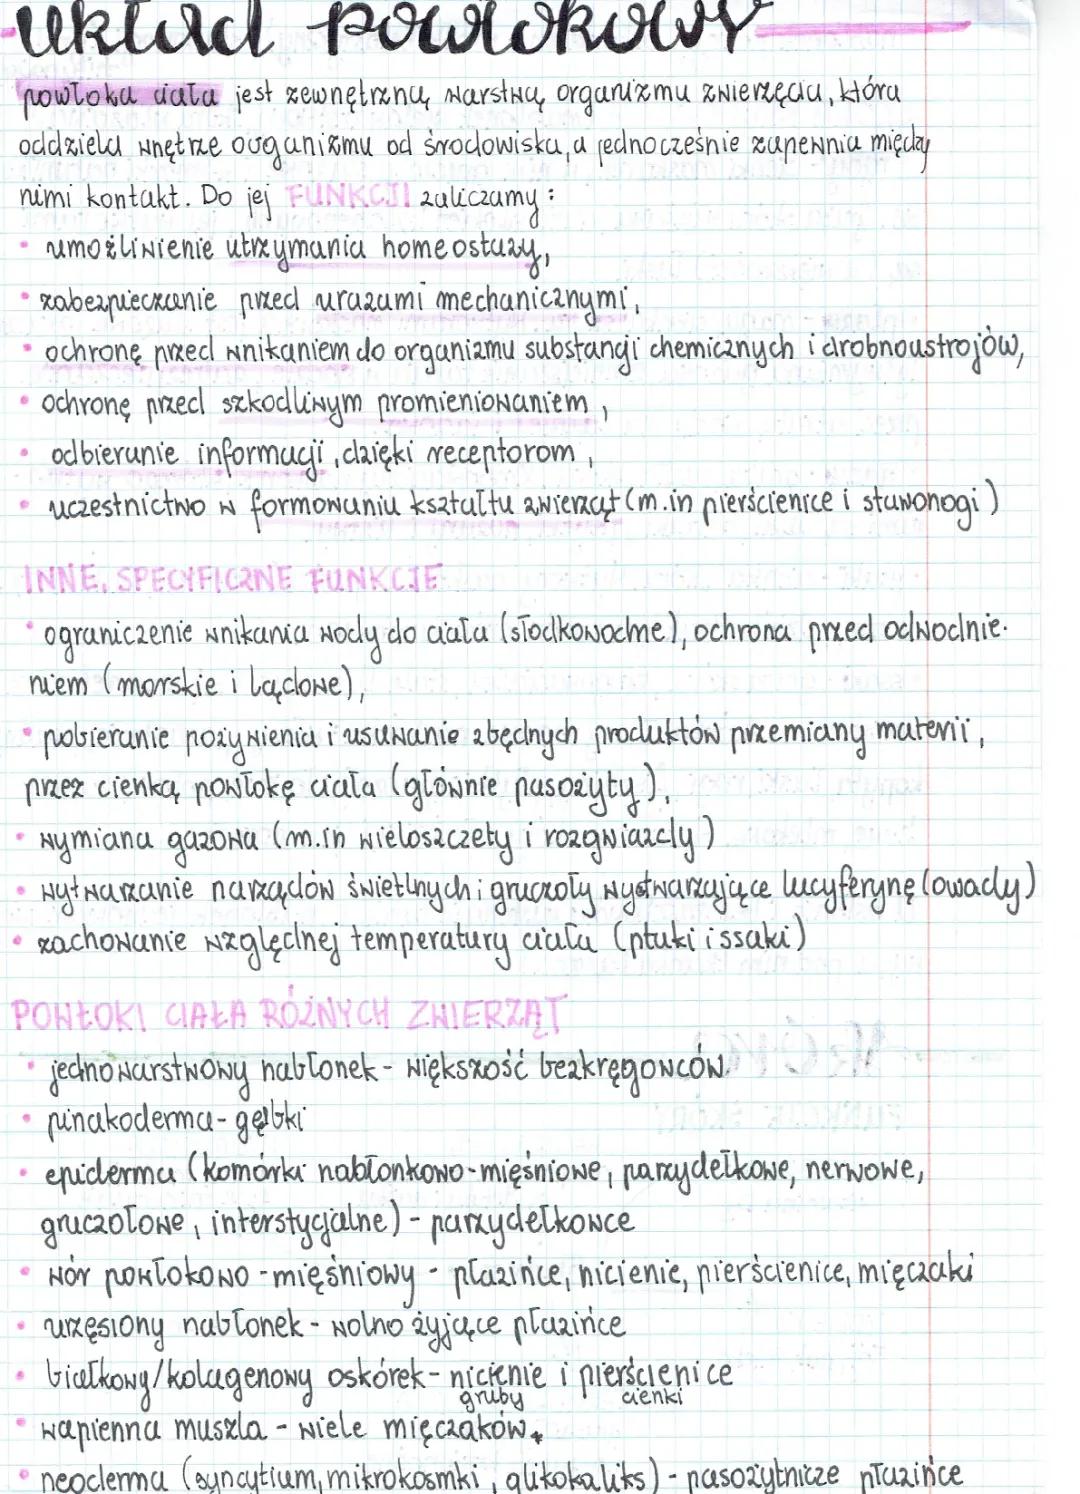 układ powłokowy
powłoka ciała jest zewnętrzną warstwą organizmu zwierzęcia, która
oddziela wnętrze organizmu od środowiska, a jednocześnie zapewnia między
nimi kontakt. Do jej FUNKCJI zaliczamy:
• umożliwienie utrzymania homeostazy,
• zabezpieczanie przed urazami mechanicznymi,
• ochronę przed wnikaniem do organizmu substancji chemicznych i drobnoustrojów,
• ochronę przed szkodliwym promieniowaniem,
• odbieranie informacji, dzięki receptorom,
• uczestnictwo w formowaniu kształtu zwierząt (m.in pierścienice i stawonogi)
INNE, SPECYFICZNE FUNKCJE
• ograniczenie wnikania wody do ciała (słodkowodne), ochrona przed odwodnie-
niem (morskie i lądowe),
• pobieranie pożywienia i usuwanie zbędnych produktów przemiany materii,
przez cienką powłokę ciała (głównie pasożyty),
• wymiana gazowa (m.in wieloszczety i rozgwiazdy)
• wytwarzanie narządów świetlnych i gruczoły wystwarzające lucyferynę (owady)
• zachowanie względnej temperatury ciała (ptaki i ssaki)
POWŁOKI CIAŁA RÓŻNYCH ZWIERZĄT
• jednowarstwowy nabłonek - większość bezkręgowców
• pinakoderma - gąbki
• epiderma (komórki nabłonkowo-mięśniowe, parzydełkowe, nerwowe,
gruczołowe, interstycjalne) - parzydełkowce
• wór powłokowo-mięśniowy - płazińce, nicienie, pierścienice, mięczaki
• urzęsiony nabłonek - wolno żyjące płazińce
• białkowy/kolagenowy oskórek - nicienie i pierścienice
gruby cienki
• wapienna muszla - wiele mięczaków
• neoderma (syncytium, mikrokosmki, glikokaliks) - pasożytnicze płazińce